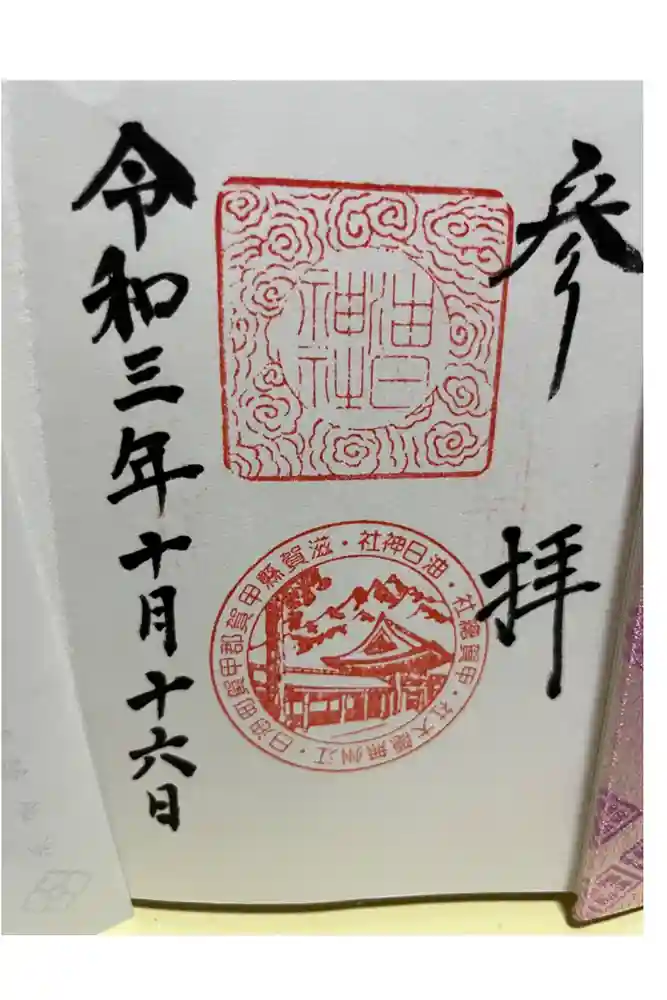 参拝
油日
神社
油日神社・滋賀縣甲賀郡甲賀町油日・江州無大社・甲賀總社
令和三年十月十六日